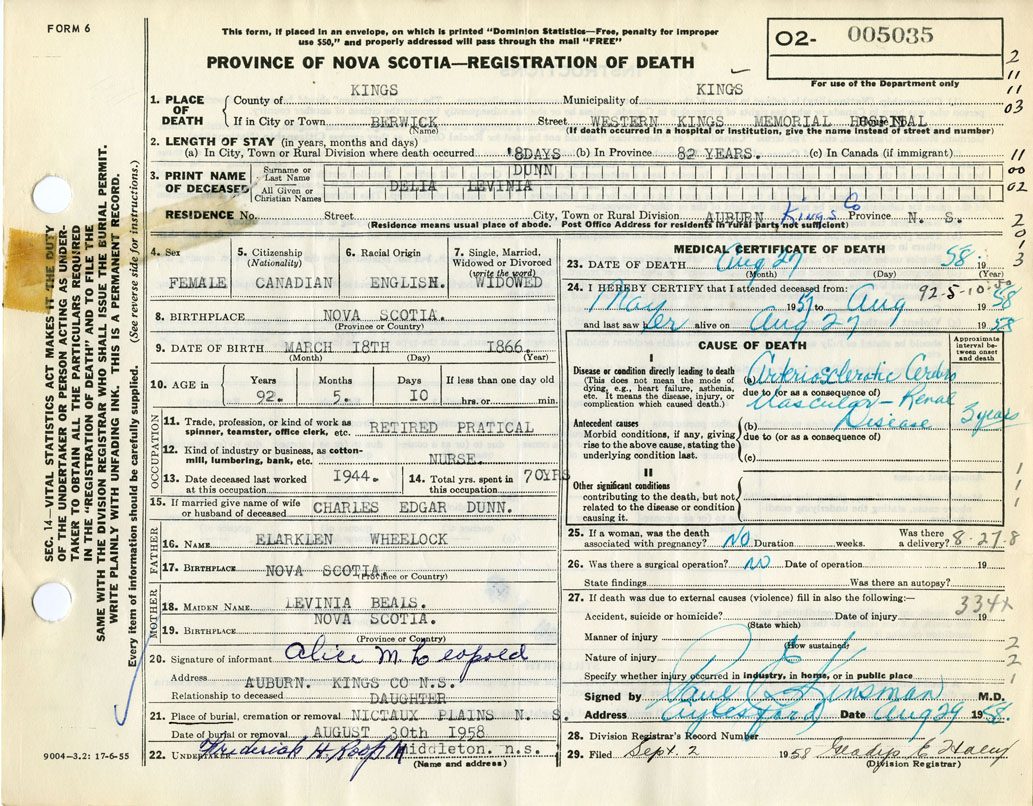 FORM 6
This form, if placed in an envelope, on which is printed "Dominion Statistics—Free, penalty for improper
use $50," and properly addressed will pass through the mail "FREE"
02- 005035
For use of the Department only
PROVINCE OF NOVA SCOTIA—REGISTRATION OF DEATH
2
11
11
03
11
00
02
2
0
1
3
SEC. 14—VITAL STATISTICS ACT MAKES IT THE DUTY
OF THE UNDERTAKER OR PERSON ACTING AS UNDER-
TAKER TO OBTAIN ALL THE PARTICULARS REQUIRED
IN THE "REGISTRATION OF DEATH" AND TO FILE THE
SAME WITH THE DIVISION REGISTRAR WHO SHALL ISSUE THE BURIAL PERMIT.
WRITE PLAINLY WITH UNFADING INK. THIS IS A PERMANENT RECORD.
Every item of information should be carefully supplied. (See reverse side for instructions.)
9004-3.2: 17-6-55
1. PLACE OF DEATH
County of KINGS Municipality of KINGS
If in City or Town BERWICK Street WESTERN KINGS MEMORIAL HOSPITAL
(Name) (If death occurred in a hospital or Institution, give the name instead of street and number)
2. LENGTH OF STAY (in years, months and days)
(a) In City, Town or Rural Division where death occurred 8DAYS (b) In Province 82 YEARS. (c) In Canada (if immigrant)
3. PRINT NAME OF DECEASED
Surname or Last Name DUNN
All Given or Christian Names DELIA LEVINIA
RESIDENCE No. Street City, Town or Rural Division AUBURN Kings Co Province N. S.
(Residence means usual place of abode. Post Office Address for residents in rural parts not sufficient)
4. Sex
FEMALE
5. Citizenship
(Nationality)
CANADIAN
6. Racial Origin
ENGLISH.
7. Single, Married,
Widowed or Divorced
(write the word)
WIDOWED
8. BIRTHPLACE NOVA SCOTIA.
(Province or Country)
9. DATE OF BIRTH MARCH 18TH 1866.
(Month) (Day) (Year)
10. AGE in
Years Months Days If less than one day old
92. 5. 10 hrs. or min.
OCCUPATION
11. Trade, profession, or kind of work as
spinner, teamster, office clerk, etc. RETIRED PRATICAL
12. Kind of industry or business, as cotton-
mill, lumbering, bank, etc. NURSE.
13. Date deceased last worked
at this occupation 1944.
14. Total yrs. spent in
this occupation 70YRS
15. If married give name of wife
or husband of deceased CHARLES EDGAR DUNN.
FATHER
16. NAME ELARKLEN WHEELOCK
17. BIRTHPLACE NOVA SCOTIA.
(Province or Country)
MOTHER
18. MAIDEN NAME LEVINIA BEALS.
19. BIRTHPLACE NOVA SCOTIA.
(Province or Country)
20. Signature of informant Alice M. Leopold
Address AUBURN. KINGS CO N.S.
Relationship to deceased DAUGHTER
21. Place of burial, cremation or removal NICTAUX PLAINS N. S.
Date of burial or removal AUGUST 30th 1958
22. UNDERTAKER Frederick H. Roop Middleton. n.s.
(Name and address)
MEDICAL CERTIFICATE OF DEATH
23. DATE OF DEATH Aug 27 1958.
(Month) (Day) (Year)
92-5-10
24. I HEREBY CERTIFY that I attended deceased from:
May 1957 to Aug 1958
and last saw her alive on Aug 27 1958
CAUSE OF DEATH
Approximate
interval be-
tween onset
and death
I
Disease or condition directly leading to death
(This does not mean the mode of
dying, e.g., heart failure, asthenia,
etc. It means the disease, injury, or
complication which caused death.)
(a) Arteriosclerotic Cerebro
due to (or as a consequence of)
Vascular — Renal
Disease
3 years
Antecedent causes
Morbid conditions, if any, giving
rise to the above cause, stating the
underlying condition last.
(b)
due to (or as a consequence of)
(c)
II
Other significant conditions
contributing to the death, but not
related to the disease or condition
causing it.
1
1
1
25. If a woman, was the death
associated with pregnancy? No Duration weeks. Was there
a delivery? 8-27.8
26. Was there a surgical operation? no Date of operation 19
State findings Was there an autopsy?
27. If death was due to external causes (violence) fill in also the following:—
334x
Accident, suicide or homicide? Date of injury 19
(State which)
Manner of injury
(How sustained)
2
Nature of injury
2
Specify whether injury occurred in industry, in home, or in public place
1
Signed by Paul E Kinsman M.D.
Address Aylesford Date Aug 29 1958.
28. Division Registrar's Record Number
29. Filed Sept. 2 1958 Gladys E
(Division Registrar)